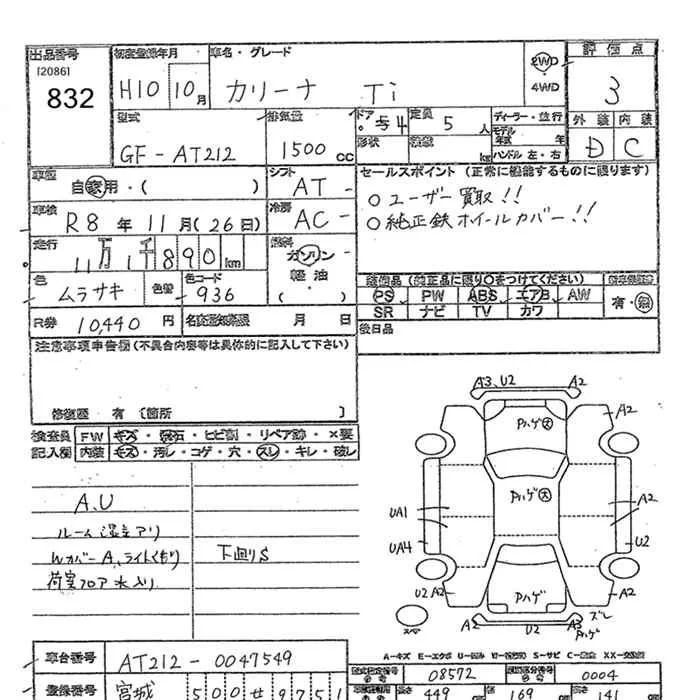 出品番号 初度登録年月 車名・グレード 2WD 評価点
[2086]
832
H10 10月 カリーナ Ti 4WD 3
型式 排気量 ドア 定員 ディーラー・並行 外装 内装
GF-AT212 1500cc 4 5人 D C
形状 積載 kg ハンドル 左・右
車歴 自家用・( ) シフト AT- セールスポイント(正常に機能するものに限ります)
車検 R8年11月(26日) 冷房 AC- ○ユーザー買取!!
○純正鉄ホイールカバー!!
走行 11万1千890km 燃料 ガソリン
軽油
( )
色 ムラサキ 色替 色コード 936
装備品(純正品に限り○をつけてください)
PS PW ABS エアB AW 有・無
SR ナビ TV カワ
R券 10,440円 名変期限 月 日 後日品
注意事項申告欄(不具合内容等は具体的に記入して下さい)
修復歴 有 [箇所 ]
検査員 FW キズ・飛石・ヒビ割・リペア跡・×要
記入欄 内装 キズ・汚レ・コゲ・穴・スレ・キレ・破レ
A.U
ルーム湿立アリ
Wカバ-A、ライトくもり 下廻りS
荷室フロア水入り
A3.U2 A2
A2
Pハゲ大
Pハゲ大
UA1 A2
UA4 U2
U2 A2 Pハゲ A2
A2 U2 A3 ズレ
Pハゲ
スペア
A-キズ E-エクボ U-凹み S-サビ XX-交換済
車台番号 AT212-0047549
型式指定番号 08572 類別区分番号 0004
登録番号 宮城 500せ9751
長さ 449 幅 169 高さ 141